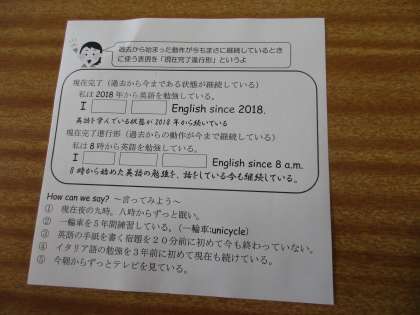 過去から始まった動作が今もまさに継続しているとき
に使う表現を「現在完了進行形」というよ
現在完了（過去から今まである状態が継続している）
私は 2018 年から英語を勉強している。
I English since 2018.
英語を学んでいる状態が 2018 年から続いている
現在完了進行形（過去からの動作が今まで継続している）
私は 8 時から英語を勉強している。
I English since 8 a.m.
8 時から始めた英語の勉強を、話をしている今も継続している。
How can we say? ～言ってみよう～
① 現在夜の九時。八時からずっと眠い。
② 一輪車を５年間練習している。（一輪車:unicycle）
③ 英語の手紙を書く宿題を２０分前に初めて今も終わっていない。
④ イタリア語の勉強を３年前に初めて現在も続けている。
⑤ 今朝からずっとテレビを見ている。